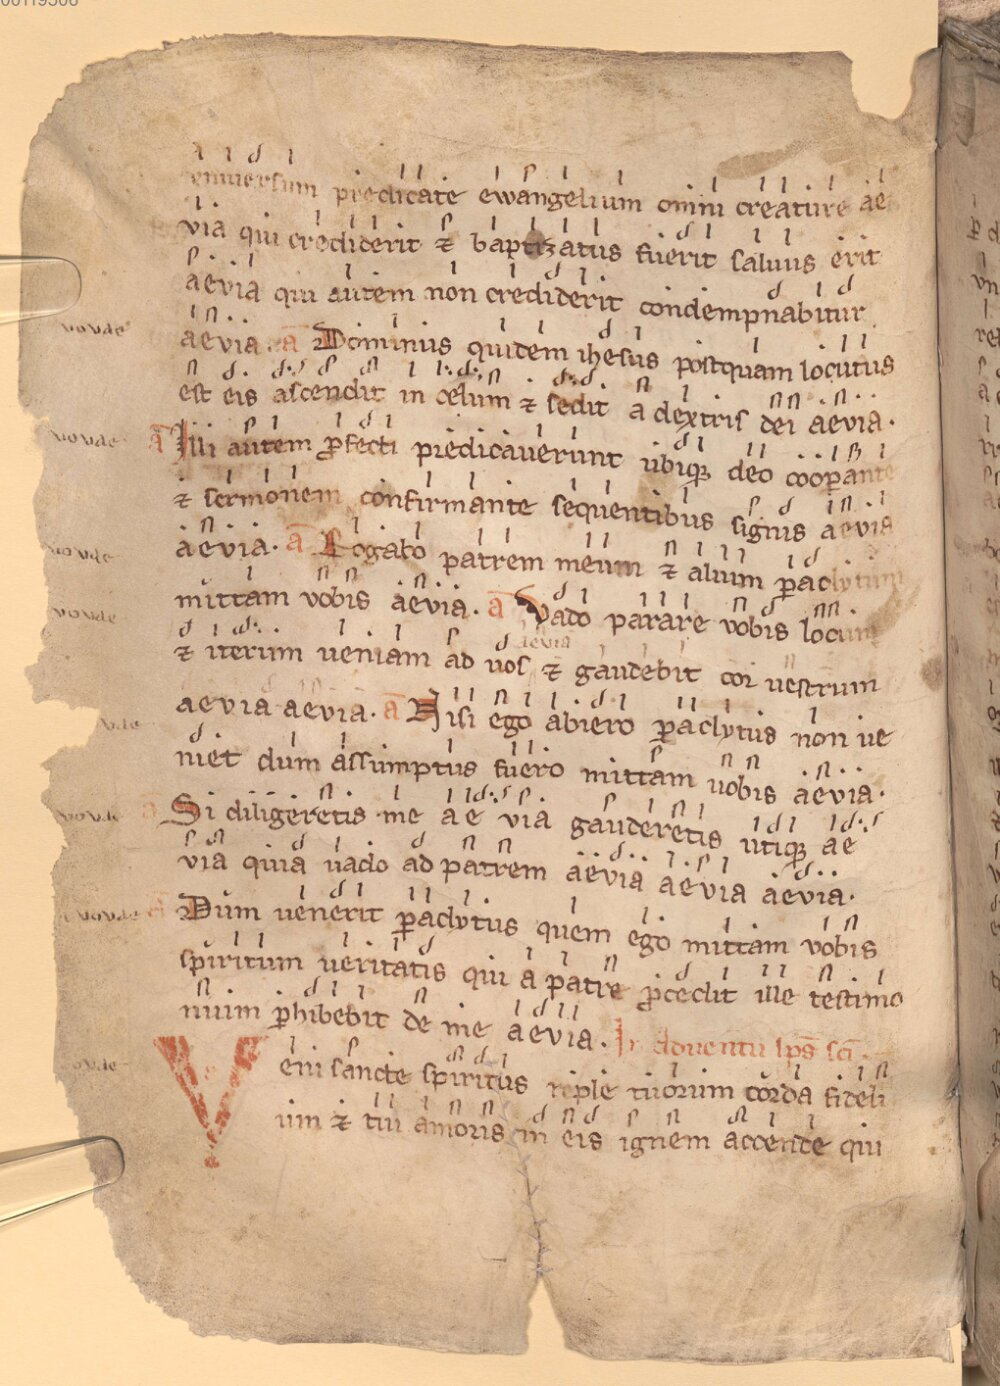 uniuersum predicate ewangelium omni creature ae
via qui crediderit ⁊ baptizatus fuerit saluus erit
aevia qui autem non crediderit condempnabitur
aevia. a̅ Dominus quidem ihesus postquam locutus
est eis ascendit in celum ⁊ sedit a dextris dei aevia.
a̅ Illi autem ꝓfecti predicauerunt ubiqꝫ deo cooꝑante
⁊ sermonem confirmante sequentibus signis aevia
aevia. a̅ Rogabo patrem meum ⁊ alium ꝑaclytum
mittam vobis aevia. a̅ Vado parare vobis locum
⁊ iterum ueniam ad uos ⁊ gaudebit cor uestrum
aevia
aevia aevia. a̅ Nisi ego abiero ꝑaclytus non ue
niet dum assumptus fuero mittam uobis aevia.
Si diligeretis me ae via gauderetis utiqꝫ ae
via quia uado ad patrem aevia aevia aevia.
Dum uenerit ꝑaclytus quem ego mittam vobis
spiritum ueritatis qui a patre ꝓcedit ille testimo
nium ꝑhibebit de me aevia. In aduentu sp̅s sc̅i.
Veni sancte spiritus reple tuorum corda fideli
um ⁊ tui amoris in eis ignem accende qui